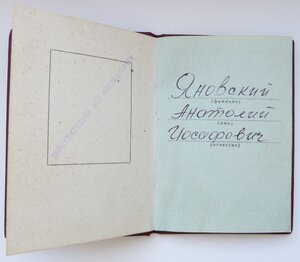 Яновский
(фамилия)
Анатолий
(имя)
Иосифович
(отчество)